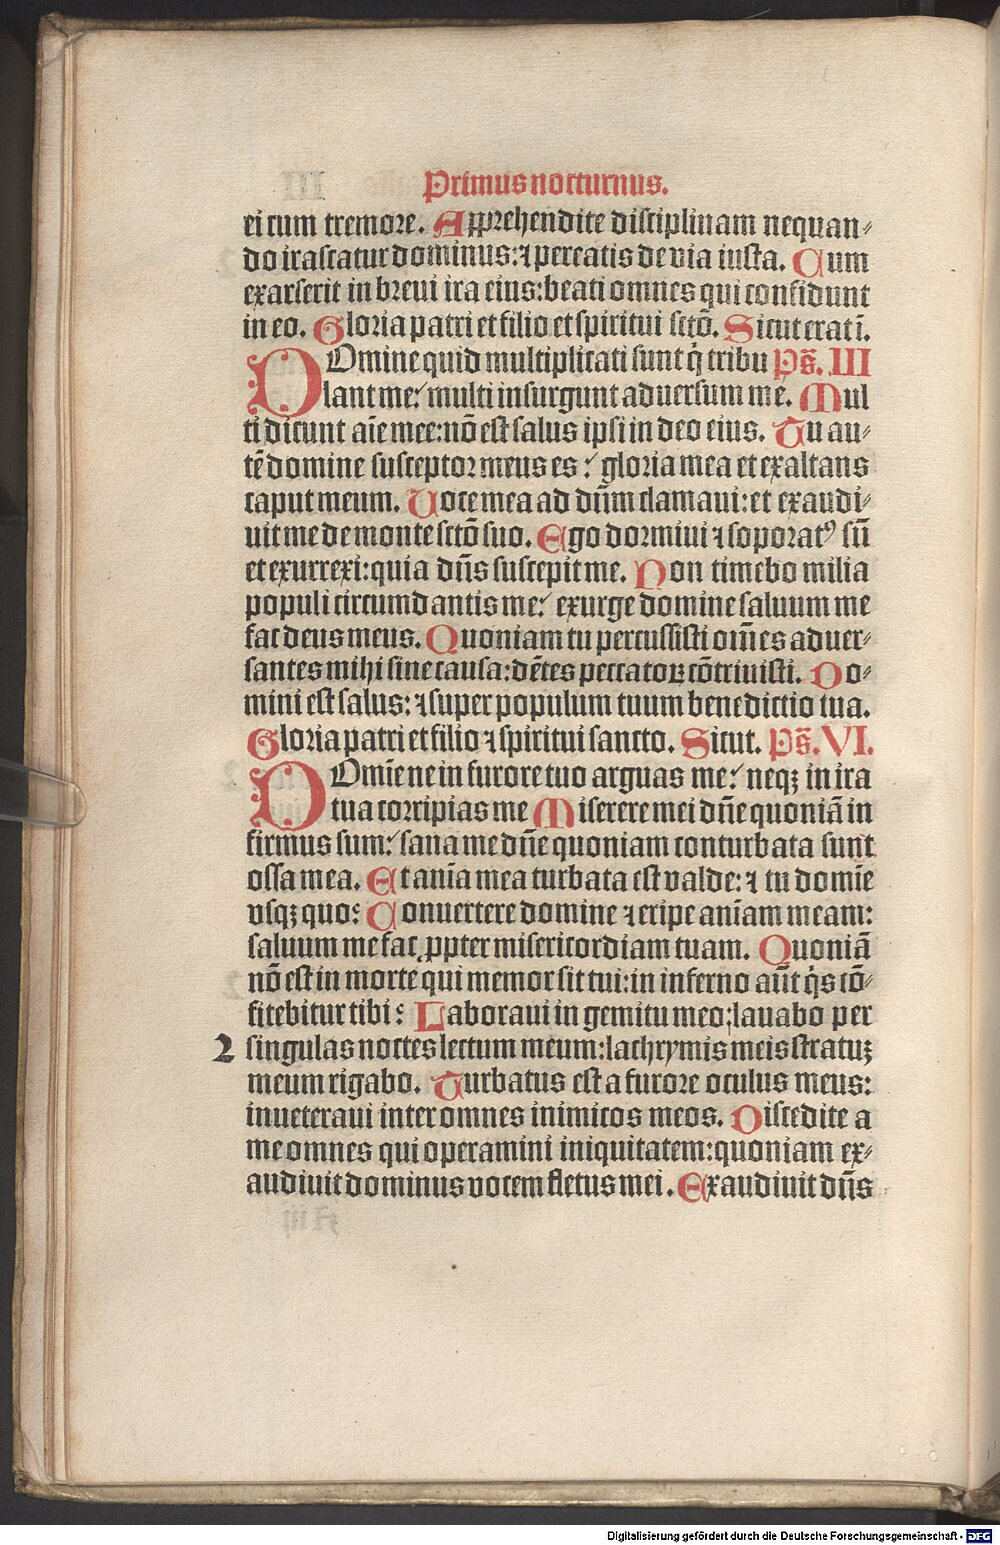 Primus nocturnus.
ei cum tremore. Apprehendite disciplinam nequan⸗
do irascatur dominus: ⁊ pereatis de via iusta. Cum
exarserit in breui ira eius: beati omnes qui confidunt
in eo. Gloria patri et filio et spiritui sctō. Sicut erat ī.
DOmine quid multiplicati sunt q̄ tribu Ps̄. III
lant me: multi insurgunt aduersum me. Mul
ti dicunt aīe mee: nō est salus ipsi in deo eius. Tu au⸗
tē domine susceptor meus es: gloria mea et exaltans
caput meum. Uoce mea ad dūm clamaui: et exaudi⸗
uit me de monte sctō suo. Ego dormiui ⁊ soporatꝰ sū
et exurrexi: quia dn̄s suscepit me. Non timebo milia
populi circumdantis me: exurge domine saluum me
fac deus meus. Quoniam tu percussisti om̄es aduer⸗
santes mihi sine causa: dētes peccatoꝝ cōtriuisti. Do⸗
mini est salus: ⁊ super populum tuum benedictio tua.
Gloria patri et filio ⁊ spiritui sancto. Sicut. Ps̄. VI.
DOmīe ne in furore tuo arguas me: neqꝫ in ira
tua corripias me Miserere mei dn̄e quoniā in
firmus sum: sana me dn̄e quoniam conturbata sunt
ossa mea. Et anīa mea turbata est valde: ⁊ tu domīe
vsqꝫ quo: Conuertere domine ⁊ eripe anīam meam:
saluum me fac ꝓpter misericordiam tuam. Quoniā
nō est in morte qui memor sit tui: in inferno aūt q̄s cō⸗
fitebitur tibi: Laboraui in gemitu meo: lauabo per
2 singulas noctes lectum meum: lachrymis meis stratuꝫ
meum rigabo. Turbatus est a furore oculus meus:
inueteraui inter omnes inimicos meos. Discedite a
me omnes qui operamini iniquitatem: quoniam ex⸗
audiuit dominus vocem fletus mei. Exaudiuit dn̄s
Digitalisierung gefördert durch die Deutsche Forschungsgemeinschaft - DFG